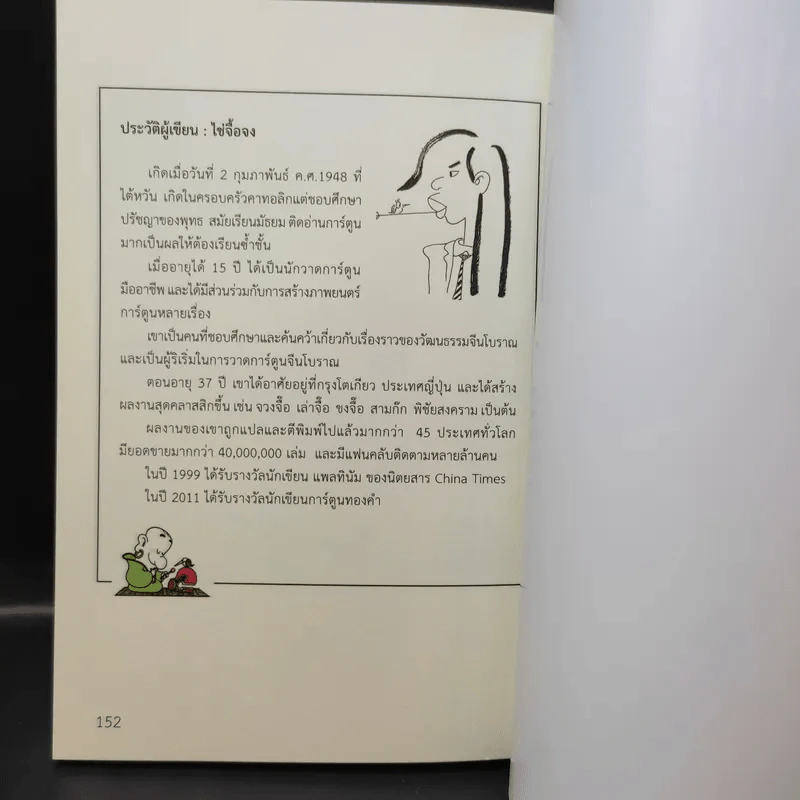 ประวัติผู้เขียน : ไช่จื้อจง
เกิดเมื่อวันที่ 2 กุมภาพันธ์ ค.ศ.1948 ที่
ไต้หวัน เกิดในครอบครัวคาทอลิกแต่ชอบศึกษา
ปรัชญาของพุทธ สมัยเรียนมัธยม ติดอ่านการ์ตูน
มากเป็นผลให้ต้องเรียนซ้ำชั้น
เมื่ออายุได้ 15 ปี ได้เป็นนักวาดการ์ตูน
มืออาชีพ และได้มีส่วนร่วมกับการสร้างภาพยนตร์
การ์ตูนหลายเรื่อง
เขาเป็นคนที่ชอบศึกษาและค้นคว้าเกี่ยวกับเรื่องราวของวัฒนธรรมจีนโบราณ
และเป็นผู้ริเริ่มในการวาดการ์ตูนจีนโบราณ
ตอนอายุ 37 ปี เขาได้อาศัยอยู่ที่กรุงโตเกียว ประเทศญี่ปุ่น และได้สร้าง
ผลงานสุดคลาสสิกขึ้น เช่น จวงจื๊อ เล่าจื๊อ ขงจื๊อ สามก๊ก พิชัยสงคราม เป็นต้น
ผลงานของเขาถูกแปลและตีพิมพ์ไปแล้วมากกว่า 45 ประเทศทั่วโลก
มียอดขายมากกว่า 40,000,000 เล่ม และมีแฟนคลับติดตามหลายล้านคน
ในปี 1999 ได้รับรางวัลนักเขียน แพลทินัม ของนิตยสาร China Times
ในปี 2011 ได้รับรางวัลนักเขียนการ์ตูนทองคำ
152